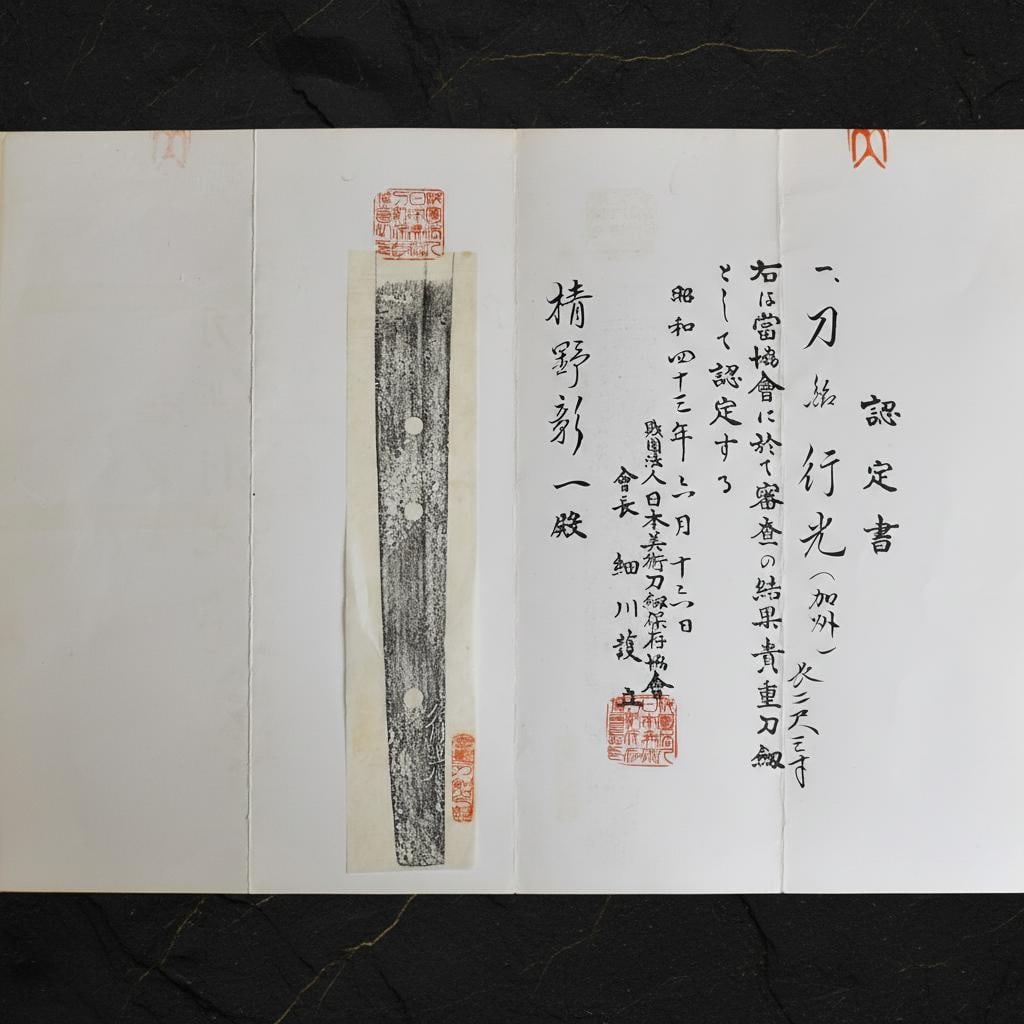 認定書
一、刀 銘 行光(加州) 長二尺三寸
右は當協會に於て審査の結果貴重刀劔
として認定する
昭和四十三年六月十六日
財團法人日本美術刀劔保存協會
會長 細川護立
野彰一殿
行光